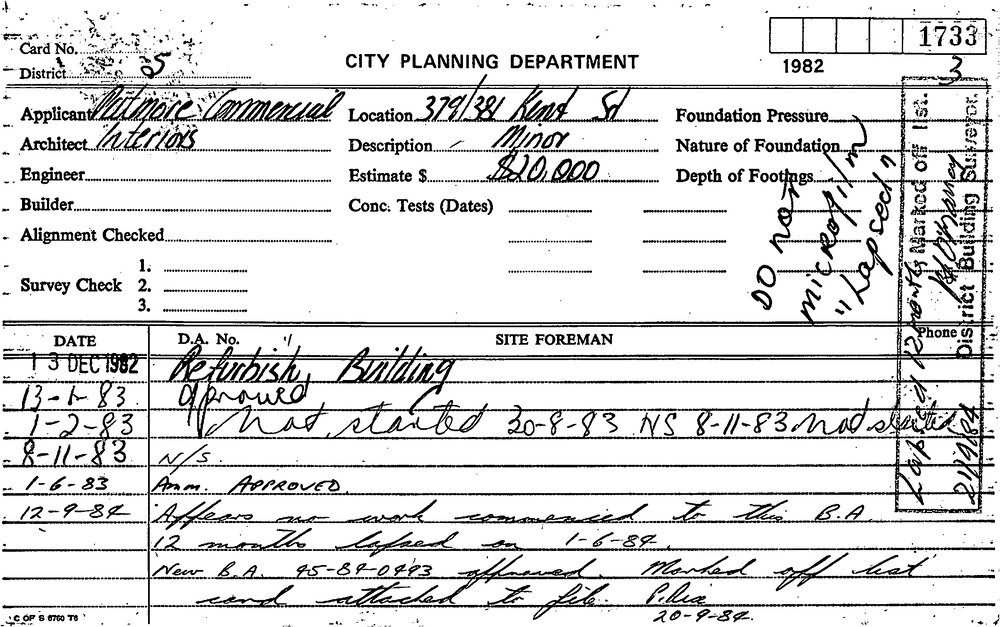 1733
Card No.
CITY PLANNING DEPARTMENT
1982
3
District S
Applicant Commercial
Location 379/381 Kent St
Foundation Pressure
Architect Interiors
Description Minor
Nature of Foundation
Engineer
Estimate $ $20,000
Depth of Footings
Builder
Conc. Tests (Dates)
Alignment Checked
Survey Check
1.
2.
3.
DO NOT
MICROFILM
"Lapsed"
Lapsed 12 months Marked off list.
21/9/84 District Building Surveyor.
DATE
D.A. No.
SITE FOREMAN
Phone
13 DEC 1982 Refurbish Building
13-1-83 approved
1-2-83 Not started 20-8-83 NS 8-11-83 Not started
8-11-83 N/S.
1-6-83 Amm. APPROVED.
12-9-84 Appears no work commenced to this B.A.
12 months lapsed on 1-6-84.
New B.A. 45-84-0493 approved. Marked off list
card attached to file.
20-9-84.
C OF S 6760 T6